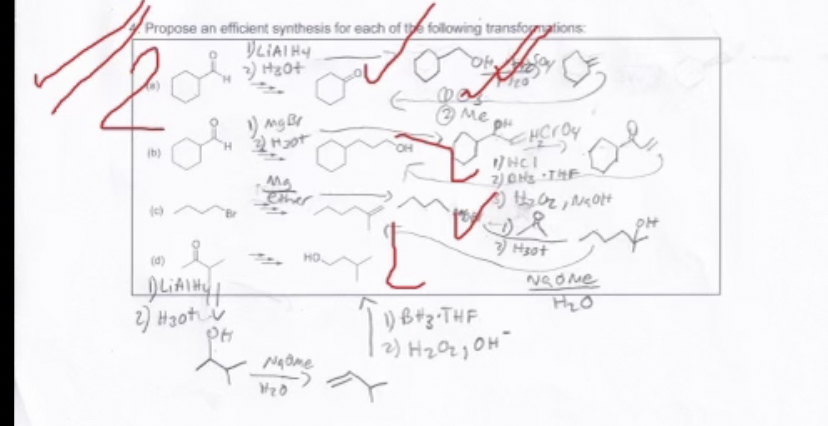 4. Propose an efficient synthesis for each of the following transformations:
2
(a)
O
H
1) LiAlH4
2) H3O+
O
OH
H2O
① O3
② Me
(b)
O
H
1) MgBr
2) H3O+
OH
OH
HCrO4
O
1) HCl
2) BH3·THF
3) H2O2, NaOH
(c)
Br
Mg
ether
1)
2) H3O+
OH
NaOMe
H2O
(d)
O
HO
1) LiAlH4
2) H3O+
OH
NaOMe
H2O
1) BH3·THF
2) H2O2, OH-